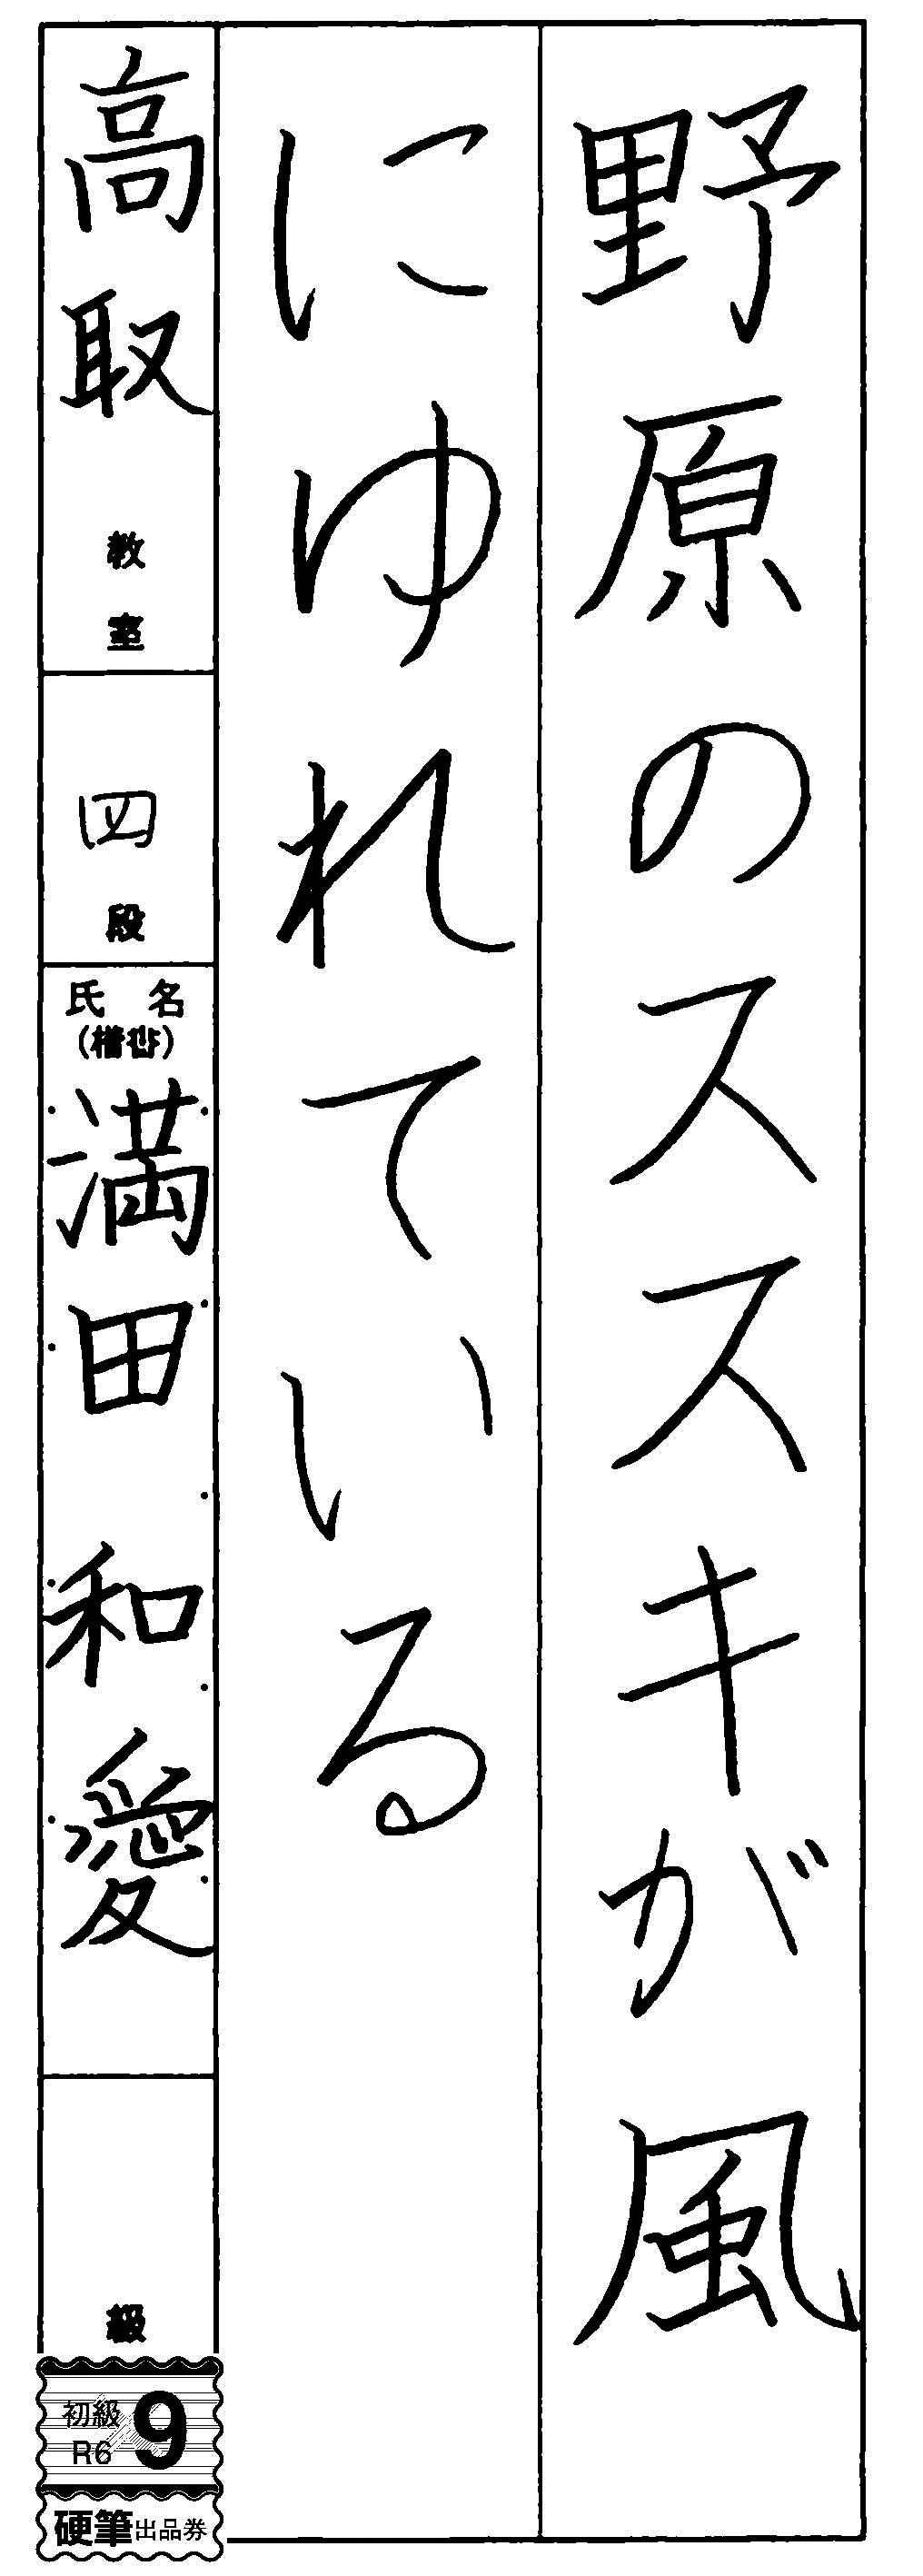 野原のススキが風
にゆれている
高取教室
四段
氏名
(楷書)
満田和愛
級
初級
R6
9
硬筆出品券